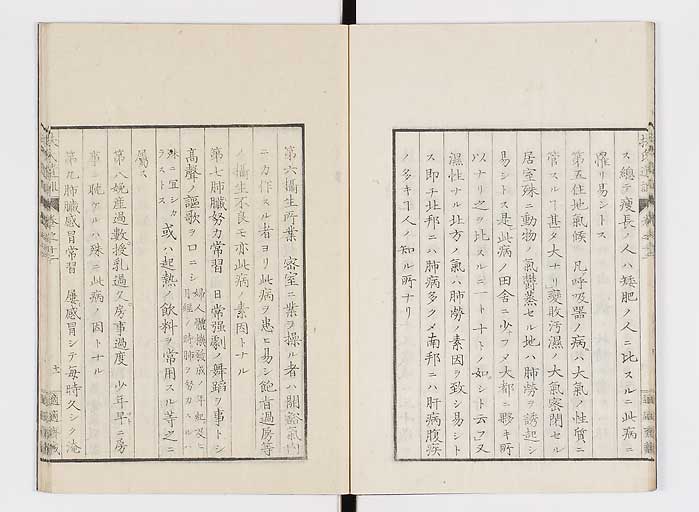 ス總テ瘦長ノ人ハ矮肥ノ人ニ比スルニ此病ニ
罹リ易シトス
第五住地氣候 凡呼吸器ノ病ハ大氣ノ性質ニ
管スルヿ甚タ大ナリ腐敗汚濕ノ大氣密閉セル
居室殊ニ動物ノ氣鬱蒸セル地ハ肺勞ヲ誘起シ
易シトス是此病ノ田舎ニ少フメ大都ニ夥キ所
以ナリ之ヲ比スルニ一ト十トノ如シト云フ又
濕性ナル北方ノ氣ハ肺勞ノ素因ヲ致シ易シト
ス即チ北邦ニハ肺病多クメ南邦ニハ肝病腹疾
ノ多キヿ人ノ知ル所ナリ
第六攝生所業 密室ニ業ヲ操ル者ハ開豁氣内
ニ力作スル者ヨリ此病ヲ患ヒ易シ飽食過房等
ノ攝生不良モ亦此病ノ素因トナル
第七肺臟努力常習 日常强劇ノ舞蹈ヲ事トシ
高聲ノ謳歌ヲ口ニシ
婦人體機敏成ノ年紀及ヒ
月經ノ時肺ヲ努力スルハ
殊ニ宜シカ
ラストス
或ハ起熱ノ飲料ヲ常用スル等之ニ
屬ス
第八娩産過數授乳過久房事過度 少年早ニ房
事ニ耽ケルハ殊ニ此病ノ因トナル
第九肺臟感冒常習 屢感冒シテ毎時久シク淹